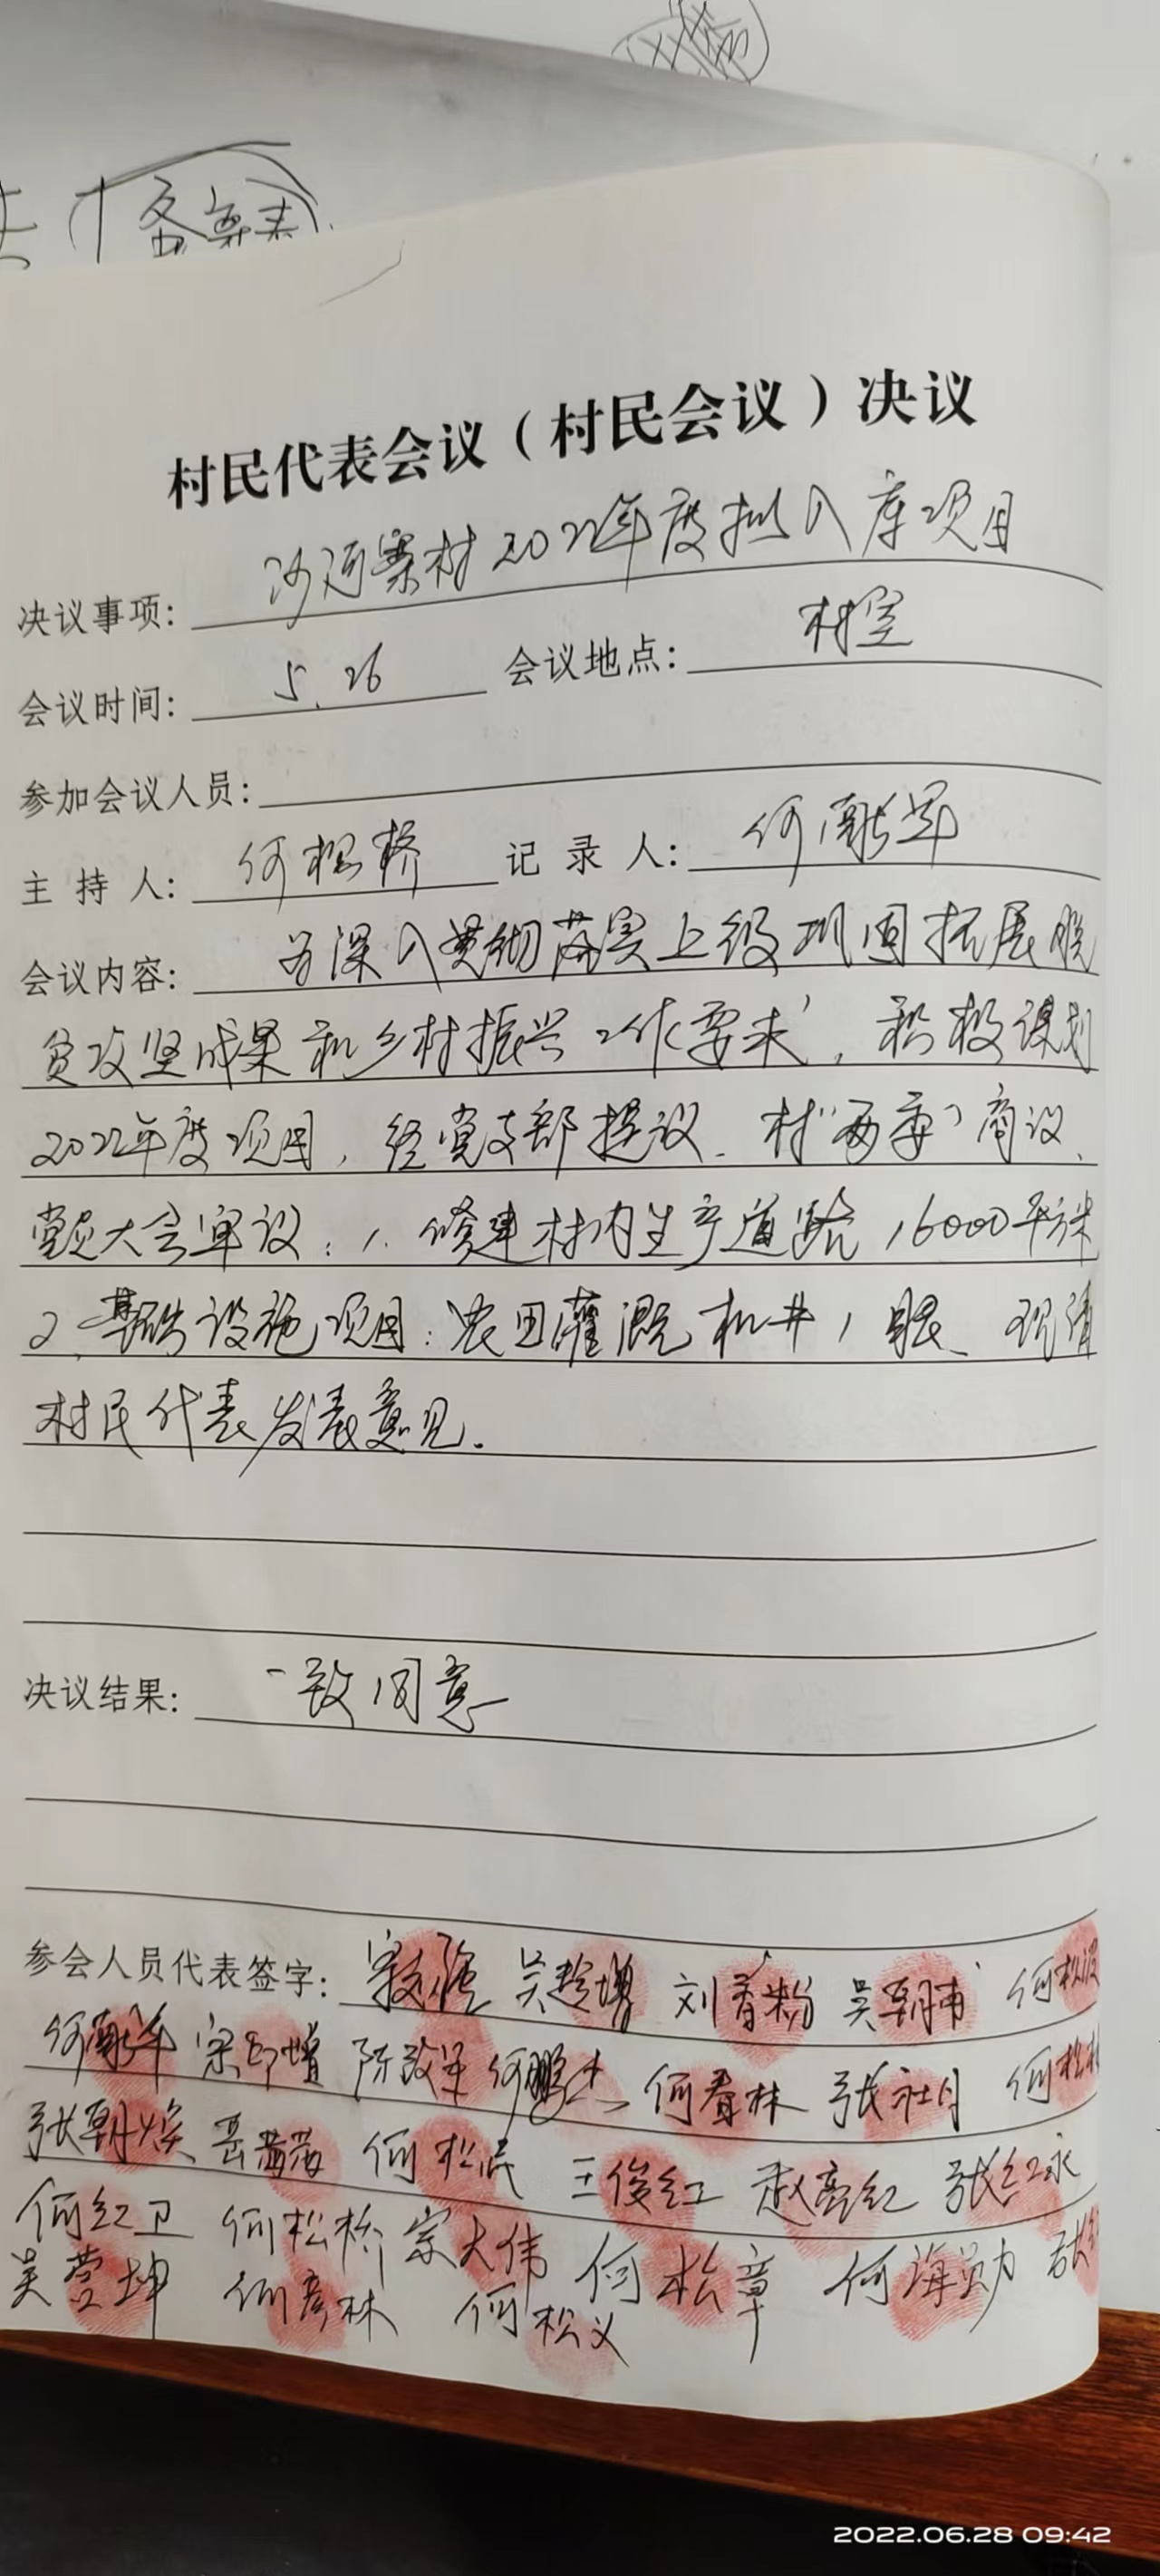 备案表
村民代表会议（村民会议）决议
决议事项： 沙河寨村2022年度拟入库项目
会议时间： 5.26 会议地点： 村室
参加会议人员：
主持人： 何松桥 记录人： 何献军
会议内容： 为深入贯彻落实上级巩固拓展脱
贫攻坚成果和乡村振兴工作要求，积极谋划
2022年度项目，经党支部提议、村"两委"商议、
党员大会审议：1.修建村内生产道路16000平方米
2、基础设施项目：农田灌溉机井1眼、现请
村民代表发表意见.
决议结果： 一致同意
参会人员代表签字： 刘香粉 何松
何献军 何鹏杰 何春林 张社月 何松
何松民 王俊红 赵亮红 张红永
何红卫 何松桥 宗大伟 何松章 何海勤
何彦林 何松义
2022.06.28 09:42